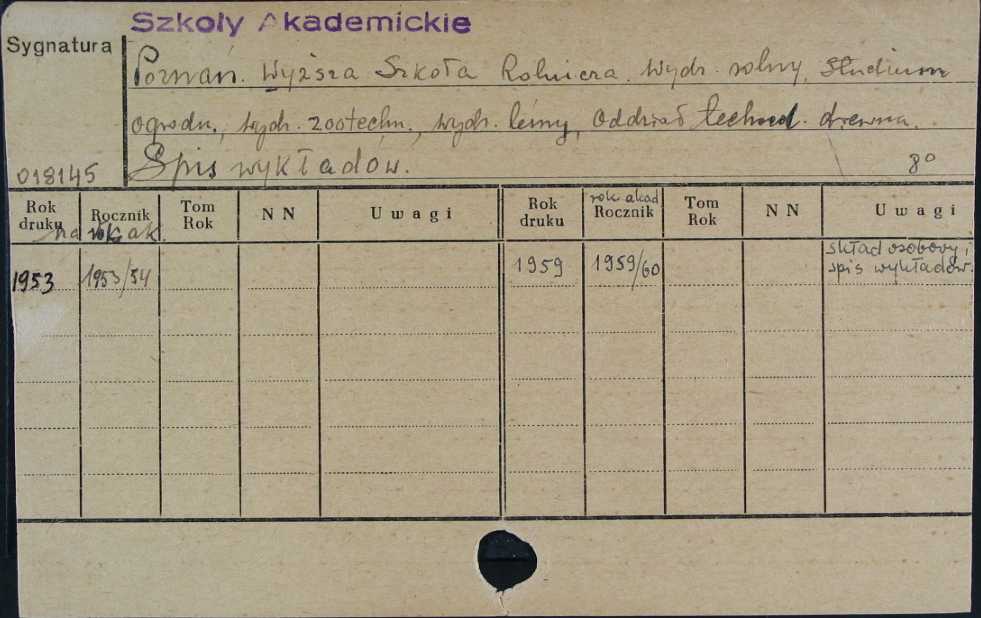 Szkoły Akademickie
Sygnatura
Poznań. Wyższa Szkoła Rolnicza. Wydz. rolny, Studium
ogrodn., wydz. zootechn., wydz. leśny, Oddział technol. drewna.
018145 Spis wykładów. 8°
Rok druku Rocznik Tom Rok NN Uwagi Rok druku rok akad Rocznik Tom Rok NN Uwagi
na rok ak.
1953 1953/54 1959 1959/60 skład osobowy i
spis wykładów.